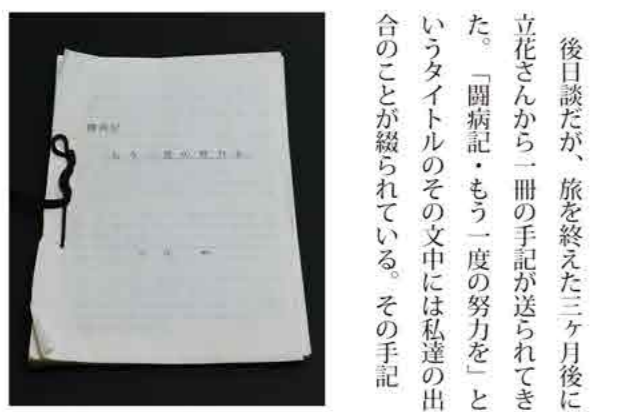 後日談だが、旅を終えた三ヶ月後に
立花さんから一冊の手記が送られてき
た。「闘病記・もう一度の努力を」と
いうタイトルのその文中には私達の出
合のことが綴られている。その手記
闘病記
もう一度の努力を